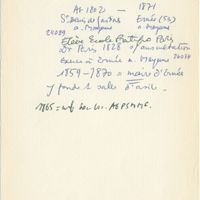 Av. 1802 — 1871
St Denis de Gastines Ernée (53)
a. Mayenne a. Mayenne
24039
Elève Ecole Pratique Paris
Dr Paris 1828 = auscultation
Exerce à Ernée a. Mayenne 24039
1859-1870 = maire d'Ernée
y fonde 1 salle d'asile.
1865 =